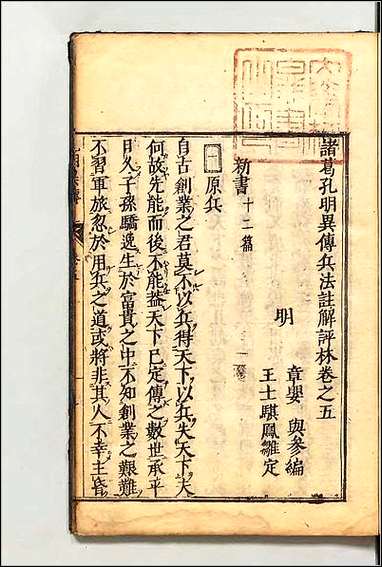 諸葛孔明異傳兵法註解評林卷之五
明
章嬰 與參編
王士騏鳳雛定
新書十二篇
一 原兵
自古創業之君莫不以兵得天下以兵失天下夫
何故先能而後不能葢天下已定傳之數世承平
日久子孫驕逸生於富貴之中不知創業之艱難
不習軍旅忽於用兵之道或將非其人不幸主昏